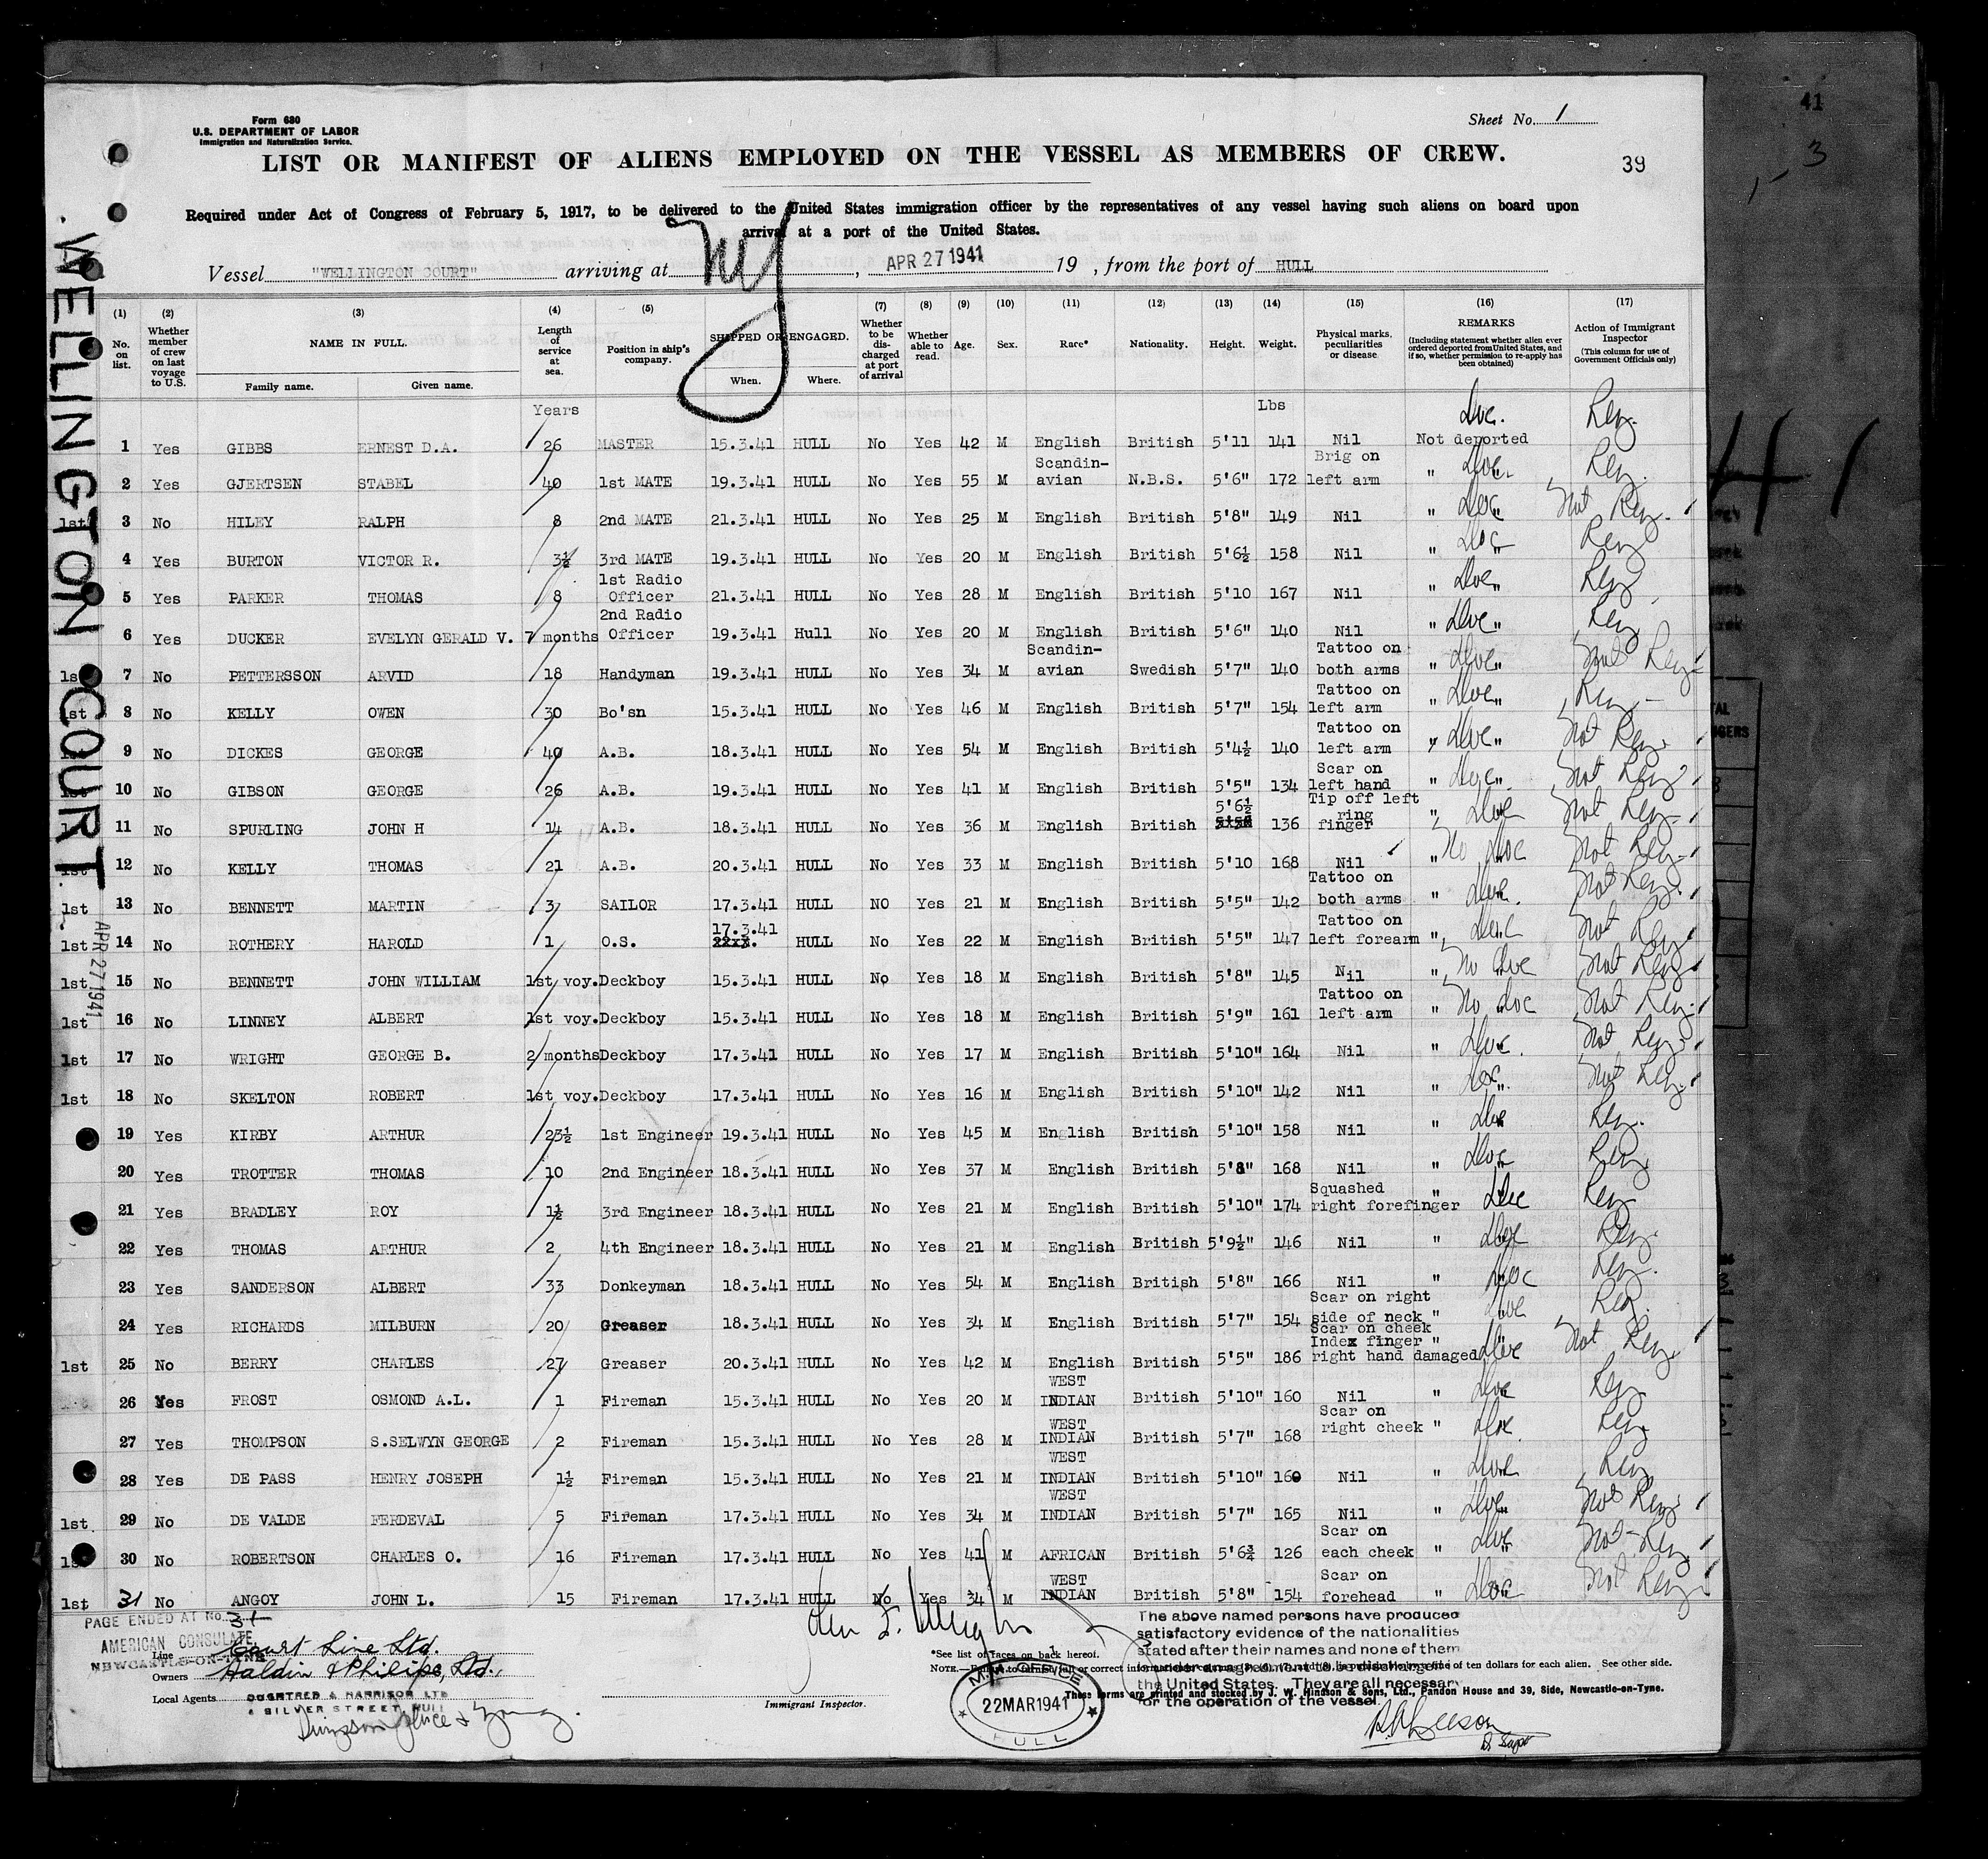 41
3
Form 680
U.S. DEPARTMENT OF LABOR
Immigration and Naturalization Service.
Sheet No. 1
LIST OR MANIFEST OF ALIENS EMPLOYED ON THE VESSEL AS MEMBERS OF CREW.
39
Required under Act of Congress of February 5, 1917, to be delivered to the United States immigration officer by the representatives of any vessel having such aliens on board upon
arrival at a port of the United States.
Vessel "WELLINGTON COURT" arriving at NY, APR 27 1941 19 , from the port of HULL
WELLINGTON COURT
APR 27 1941
(1) No. on list.
(2) Whether member of crew on last voyage to U.S.
(3) NAME IN FULL. Family name. Given name.
(4) Length of service at sea.
(5) Position in ship's company.
SHIPPED OR ENGAGED. When. Where.
(7) Whether to be discharged at port of arrival
(8) Whether able to read.
(9) Age.
(10) Sex.
(11) Race*
(12) Nationality.
(13) Height.
(14) Weight.
(15) Physical marks, peculiarities or disease
(16) REMARKS (Including statement whether alien ever ordered deported from United States, and if so, whether permission to re-apply has been obtained)
(17) Action of Immigrant Inspector (This column for use of Government Officials only)
Years Lbs
1 Yes GIBBS ERNEST D.A. 26 MASTER 15.3.41 HULL No Yes 42 M English British 5'11 141 Nil Not deported
2 Yes GJERTSEN STABEL 40 1st MATE 19.3.41 HULL No Yes 55 M Scandin-avian N.B.S. 5'6" 172 Brig on left arm "
1st 3 No HILEY RALPH 8 2nd MATE 21.3.41 HULL No Yes 25 M English British 5'8" 149 Nil " Not
4 Yes BURTON VICTOR R. 3½ 3rd MATE 19.3.41 HULL No Yes 20 M English British 5'6½ 158 Nil "
5 Yes PARKER THOMAS 8 1st Radio Officer 21.3.41 HULL No Yes 28 M English British 5'10 167 Nil "
6 Yes DUCKER EVELYN GERALD V. 7 months 2nd Radio Officer 19.3.41 Hull No Yes 20 M English British 5'6" 140 Nil "
1st 7 No PETTERSSON ARVID 18 Handyman 19.3.41 HULL No Yes 34 M Scandin-avian Swedish 5'7" 140 Tattoo on both arms " Not
1st 8 No KELLY OWEN 30 Bo'sn 15.3.41 HULL No Yes 46 M English British 5'7" 154 Tattoo on left arm "
9 No DICKES GEORGE 40 A.B. 18.3.41 HULL No Yes 54 M English British 5'4½ 140 Tattoo on left arm " Not
10 No GIBSON GEORGE 26 A.B. 19.3.41 HULL No Yes 41 M English British 5'5" 134 Scar on left hand " Not
11 No SPURLING JOHN H 14 A.B. 18.3.41 HULL No Yes 36 M English British 5'6½ 136 Tip off left ring finger " Not
1st 12 No KELLY THOMAS 21 A.B. 20.3.41 HULL No Yes 33 M English British 5'10 168 Nil " No Not
1st 13 No BENNETT MARTIN 3 SAILOR 17.3.41 HULL NO Yes 21 M English British 5'5" 142 Tattoo on both arms " Not
1st 14 No ROTHERY HAROLD 1 O.S. 17.3.41 HULL No Yes 22 M English British 5'5" 147 Tattoo on left forearm " Not
1st 15 No BENNETT JOHN WILLIAM 1st voy. Deckboy 15.3.41 HULL No Yes 18 M English British 5'8" 145 Nil " No Not
1st 16 No LINNEY ALBERT 1st voy. Deckboy 15.3.41 HULL No Yes 18 M English British 5'9" 161 Tattoo on left arm " No Not
1st 17 No WRIGHT GEORGE B. 2 months Deckboy 17.3.41 HULL No Yes 17 M English British 5'10" 164 Nil " Not
1st 18 No SKELTON ROBERT 1st voy. Deckboy 17.3.41 HULL No Yes 16 M English British 5'10" 142 Nil " Not
19 Yes KIRBY ARTHUR 23½ 1st Engineer 19.3.41 HULL No Yes 45 M English British 5'10" 158 Nil "
20 Yes TROTTER THOMAS 10 2nd Engineer 18.3.41 HULL No Yes 37 M English British 5'8" 168 Nil "
21 Yes BRADLEY ROY 1½ 3rd Engineer 18.3.41 HULL No Yes 21 M English British 5'10" 174 Squashed right forefinger "
22 Yes THOMAS ARTHUR 2 4th Engineer 18.3.41 HULL No Yes 21 M English British 5'9½" 146 Nil "
23 Yes SANDERSON ALBERT 33 Donkeyman 18.3.41 HULL No Yes 54 M English British 5'8" 166 Nil "
24 Yes RICHARDS MILBURN 20 Greaser 18.3.41 HULL No Yes 34 M English British 5'7" 154 Scar on right side of neck "
1st 25 No BERRY CHARLES 27 Greaser 20.3.41 HULL No Yes 42 M English British 5'5" 186 Scar on cheek Index finger right hand damaged " Not
26 Yes FROST OSMOND A.L. 1 Fireman 15.3.41 HULL No Yes 20 M WEST INDIAN British 5'10" 160 Nil "
27 Yes THOMPSON S.SELWYN GEORGE 2 Fireman 15.3.41 HULL No Yes 28 M WEST INDIAN British 5'7" 168 Scar on right cheek "
28 Yes DE PASS HENRY JOSEPH 1½ Fireman 15.3.41 HULL No Yes 21 M WEST INDIAN British 5'10" 160 Nil "
1st 29 No DE VALDE FERDEVAL 5 Fireman 17.3.41 HULL No Yes 34 M WEST INDIAN British 5'7" 165 Nil " Not
1st 30 No ROBERTSON CHARLES O. 16 Fireman 17.3.41 HULL No Yes 41 M AFRICAN British 5'6¾ 126 Scar on each cheek " Not
1st 31 No ANGOY JOHN L. 15 Fireman 17.3.41 HULL No Yes 34 M WEST INDIAN British 5'8" 154 Scar on forehead " Not
PAGE ENDED AT No. 31
AMERICAN CONSULATE,
NEWCASTLE-ON-TYNE
Line Court Line Ltd.
Owners Haldin & Philipps, Ltd.
Local Agents OUGHTRED & HARRISON LTD
SILVER STREET, HULL
Immigrant Inspector.
*See list of races on back hereof.
The above named persons have produced
satisfactory evidence of the nationalities
stated after their names and none of them
is under engagement to be discharged in
the United States. They are all necessary
for the operation of the vessel.
of ten dollars for each alien. See other side.
These forms are printed and stocked by J. W. Hindson & Sons, Ltd., Pandon House and 39, Side, Newcastle-on-Tyne.
OFFICE
22 MAR 1941
HULL